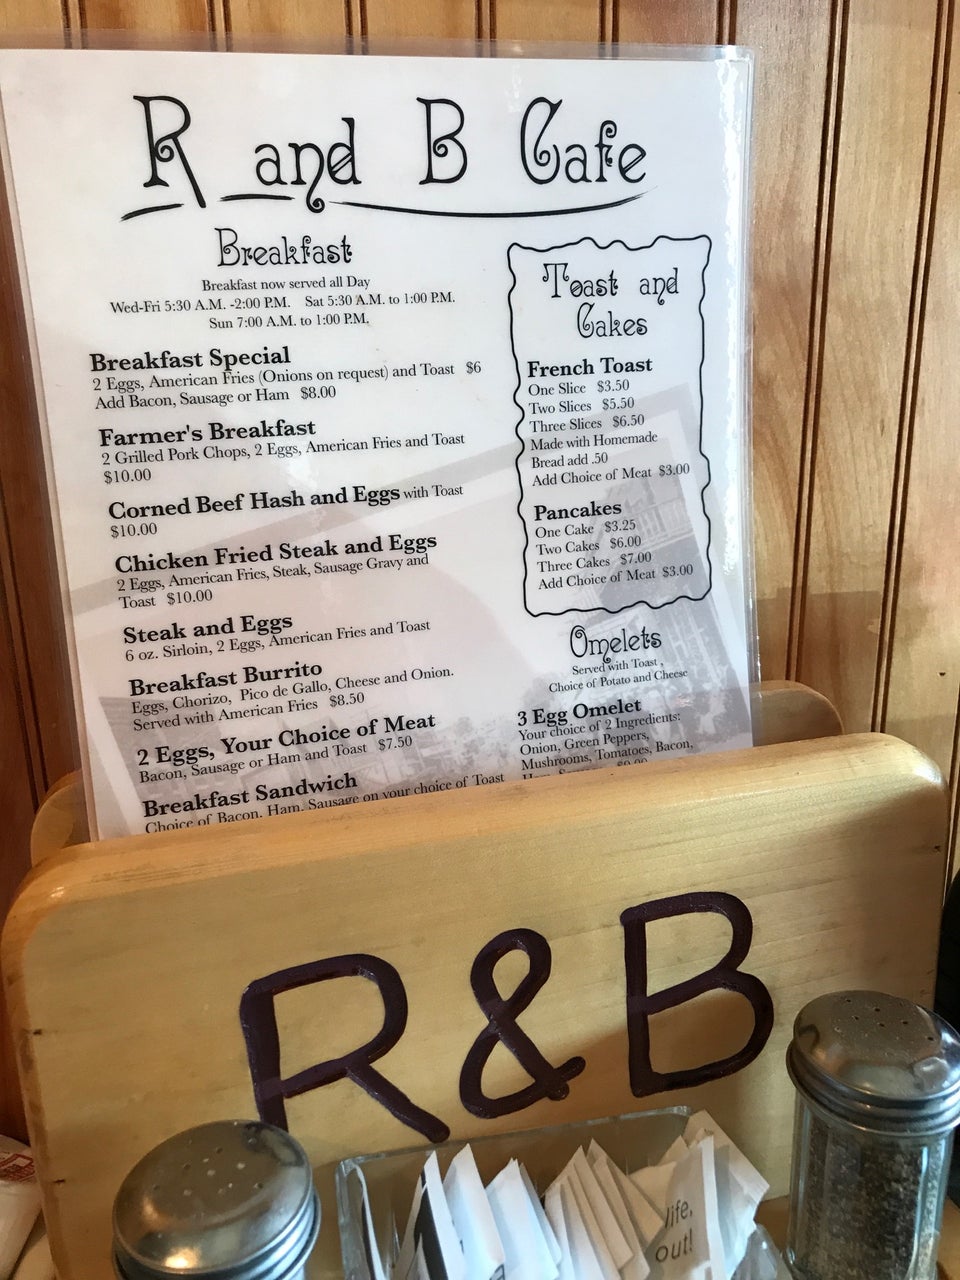 R and B Cafe
Breakfast
Breakfast now served all Day
Wed-Fri 5:30 A.M. -2:00 P.M. Sat 5:30 A.M. to 1:00 P.M.
Sun 7:00 A.M. to 1:00 P.M.
Breakfast Special
2 Eggs, American Fries (Onions on request) and Toast $6
Add Bacon, Sausage or Ham $8.00
Farmer's Breakfast
2 Grilled Pork Chops, 2 Eggs, American Fries and Toast
$10.00
Corned Beef Hash and Eggs with Toast
$10.00
Chicken Fried Steak and Eggs
2 Eggs, American Fries, Steak, Sausage Gravy and
Toast $10.00
Steak and Eggs
6 oz. Sirloin, 2 Eggs, American Fries and Toast
Breakfast Burrito
Eggs, Chorizo, Pico de Gallo, Cheese and Onion.
Served with American Fries $8.50
2 Eggs, Your Choice of Meat
Bacon, Sausage or Ham and Toast $7.50
Breakfast Sandwich
Choice of Bacon, Ham, Sausage on your choice of Toast
Toast and
Cakes
French Toast
One Slice $3.50
Two Slices $5.50
Three Slices $6.50
Made with Homemade
Bread add .50
Add Choice of Meat $3.00
Pancakes
One Cake $3.25
Two Cakes $6.00
Three Cakes $7.00
Add Choice of Meat $3.00
Omelets
Served with Toast ,
Choice of Potato and Cheese
3 Egg Omelet
Your choice of 2 Ingredients:
Onion, Green Peppers,
Mushrooms, Tomatoes, Bacon,
R&B
life,
out!